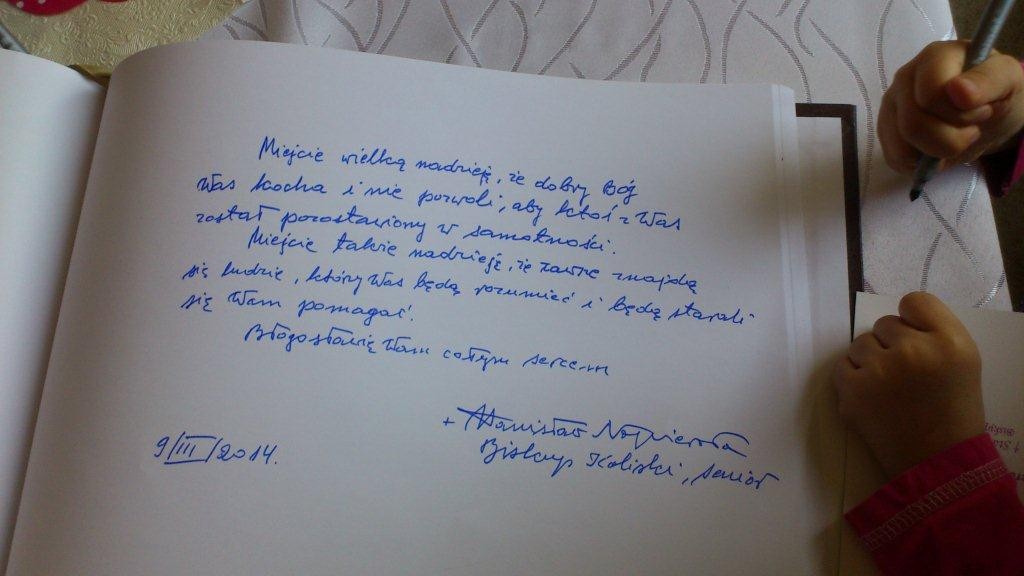 Miejcie wielką nadzieję, że dobry Bóg
Was kocha i nie pozwoli, aby ktoś z Was
został pozostawiony w samotności.
Miejcie także nadzieję, że zawsze znajdą
się ludzie, którzy Was będą rozumieć i będą starali
się Wam pomagać.
Błogosławię Wam całym sercem
+ Stanisław Napierała
Biskup Kaliski, senior
9/III/2014.